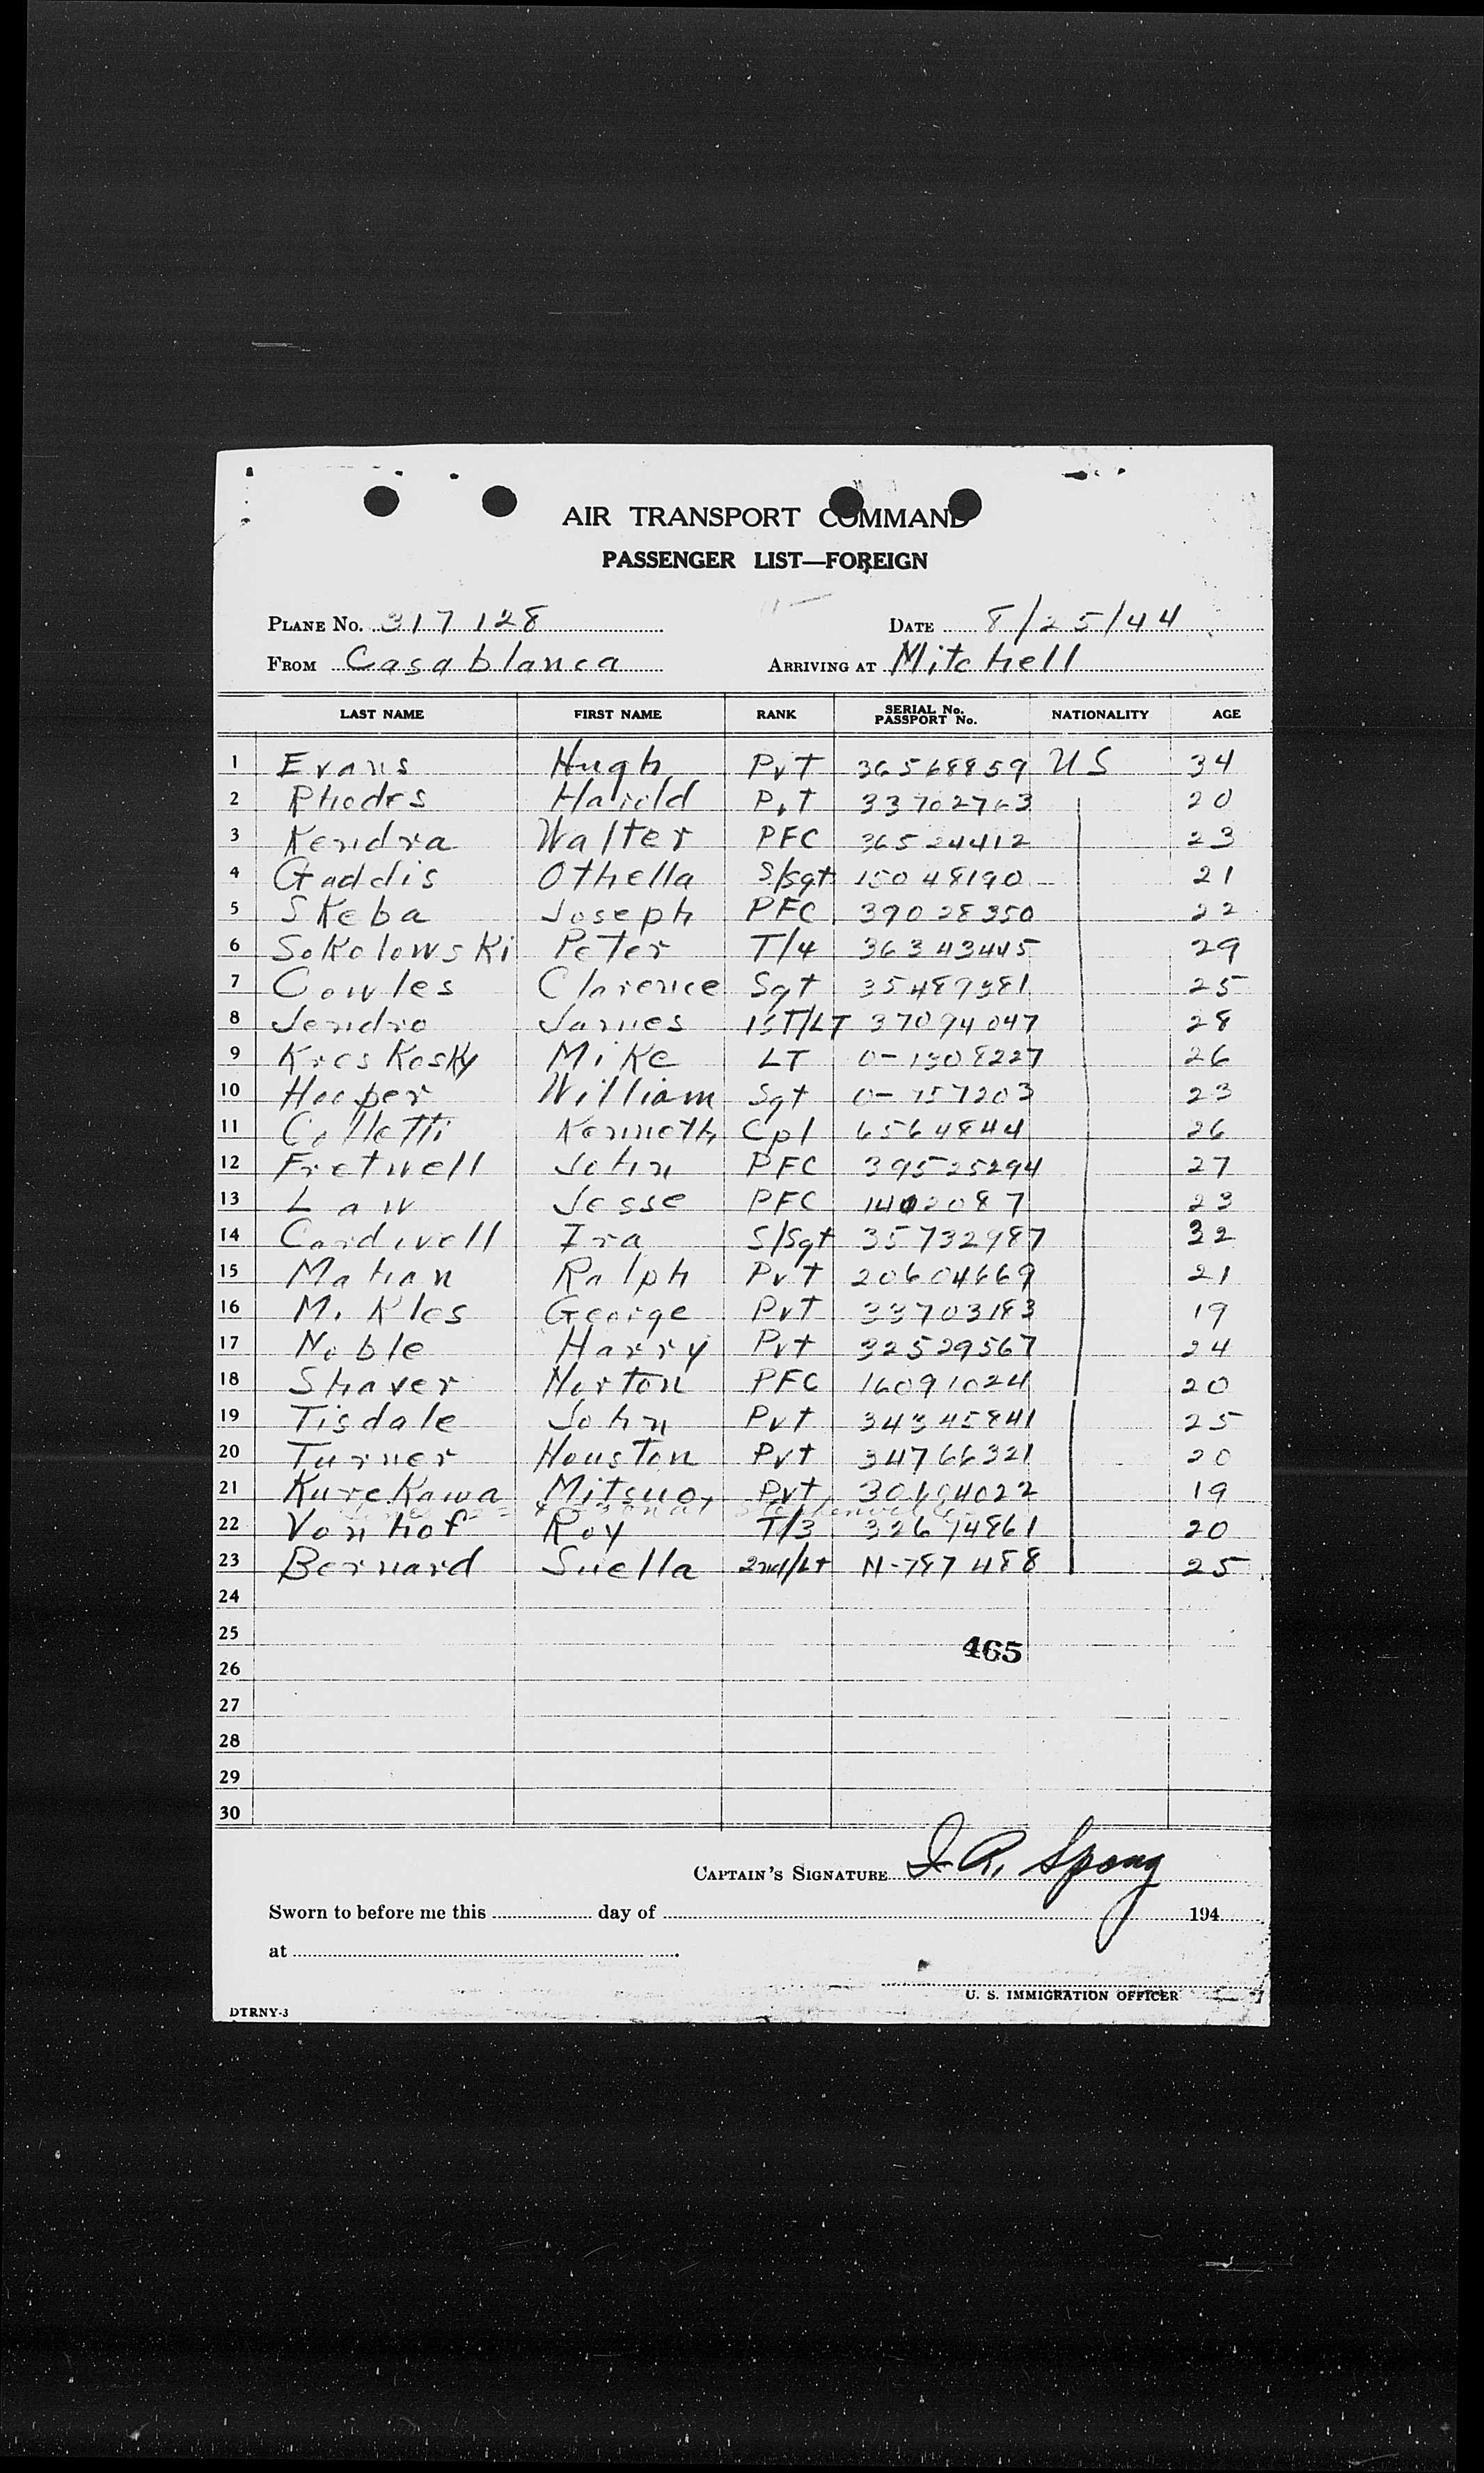 AIR TRANSPORT COMMAND
PASSENGER LIST—FOREIGN
PLANE No. 317128 DATE 8/25/44
FROM Casablanca ARRIVING AT Mitchell
LAST NAME FIRST NAME RANK SERIAL No. PASSPORT No. NATIONALITY AGE
1 Evans Hugh Pvt 36568859 US 34
2 Rhodes Harold Pvt 33702763 20
3 Kendra Walter PFC 36524412 23
4 Gaddis Othella S/Sgt 15048190 21
5 Skeba Joseph PFC 39028350 22
6 Sokolowski Peter T/4 36343445 29
7 Cowles Clarence Sgt 35489381 25
8 Jendro James 1ST/LT 37094047 28
9 Kreskosky Mike LT 0-1308227 26
10 Hooper William Sgt 0-757203 23
11 Colletti Kenneth Cpl 6564844 26
12 Fretwell John PFC 39525294 27
13 Law Jesse PFC 1402087 23
14 Cardwell Ira S/Sgt 35732987 32
15 Mahan Ralph Pvt 20604669 21
16 Mikles George Pvt 33703183 19
17 Noble Harry Pvt 32529567 24
18 Shaver Norton PFC 16091024 20
19 Tisdale John Pvt 34345841 25
20 Turner Houston Pvt 34766321 20
21 Kurekawa Mitsuo Pvt 30104022 19
22 Vonhof Roy T/3 32674861 20
23 Bernard Suella 2nd/Lt N-787488 25
24
25
465
26
27
28
29
30
CAPTAIN'S SIGNATURE J. R. Spong
Sworn to before me this day of 194
at
U. S. IMMIGRATION OFFICER
DTRNY-3